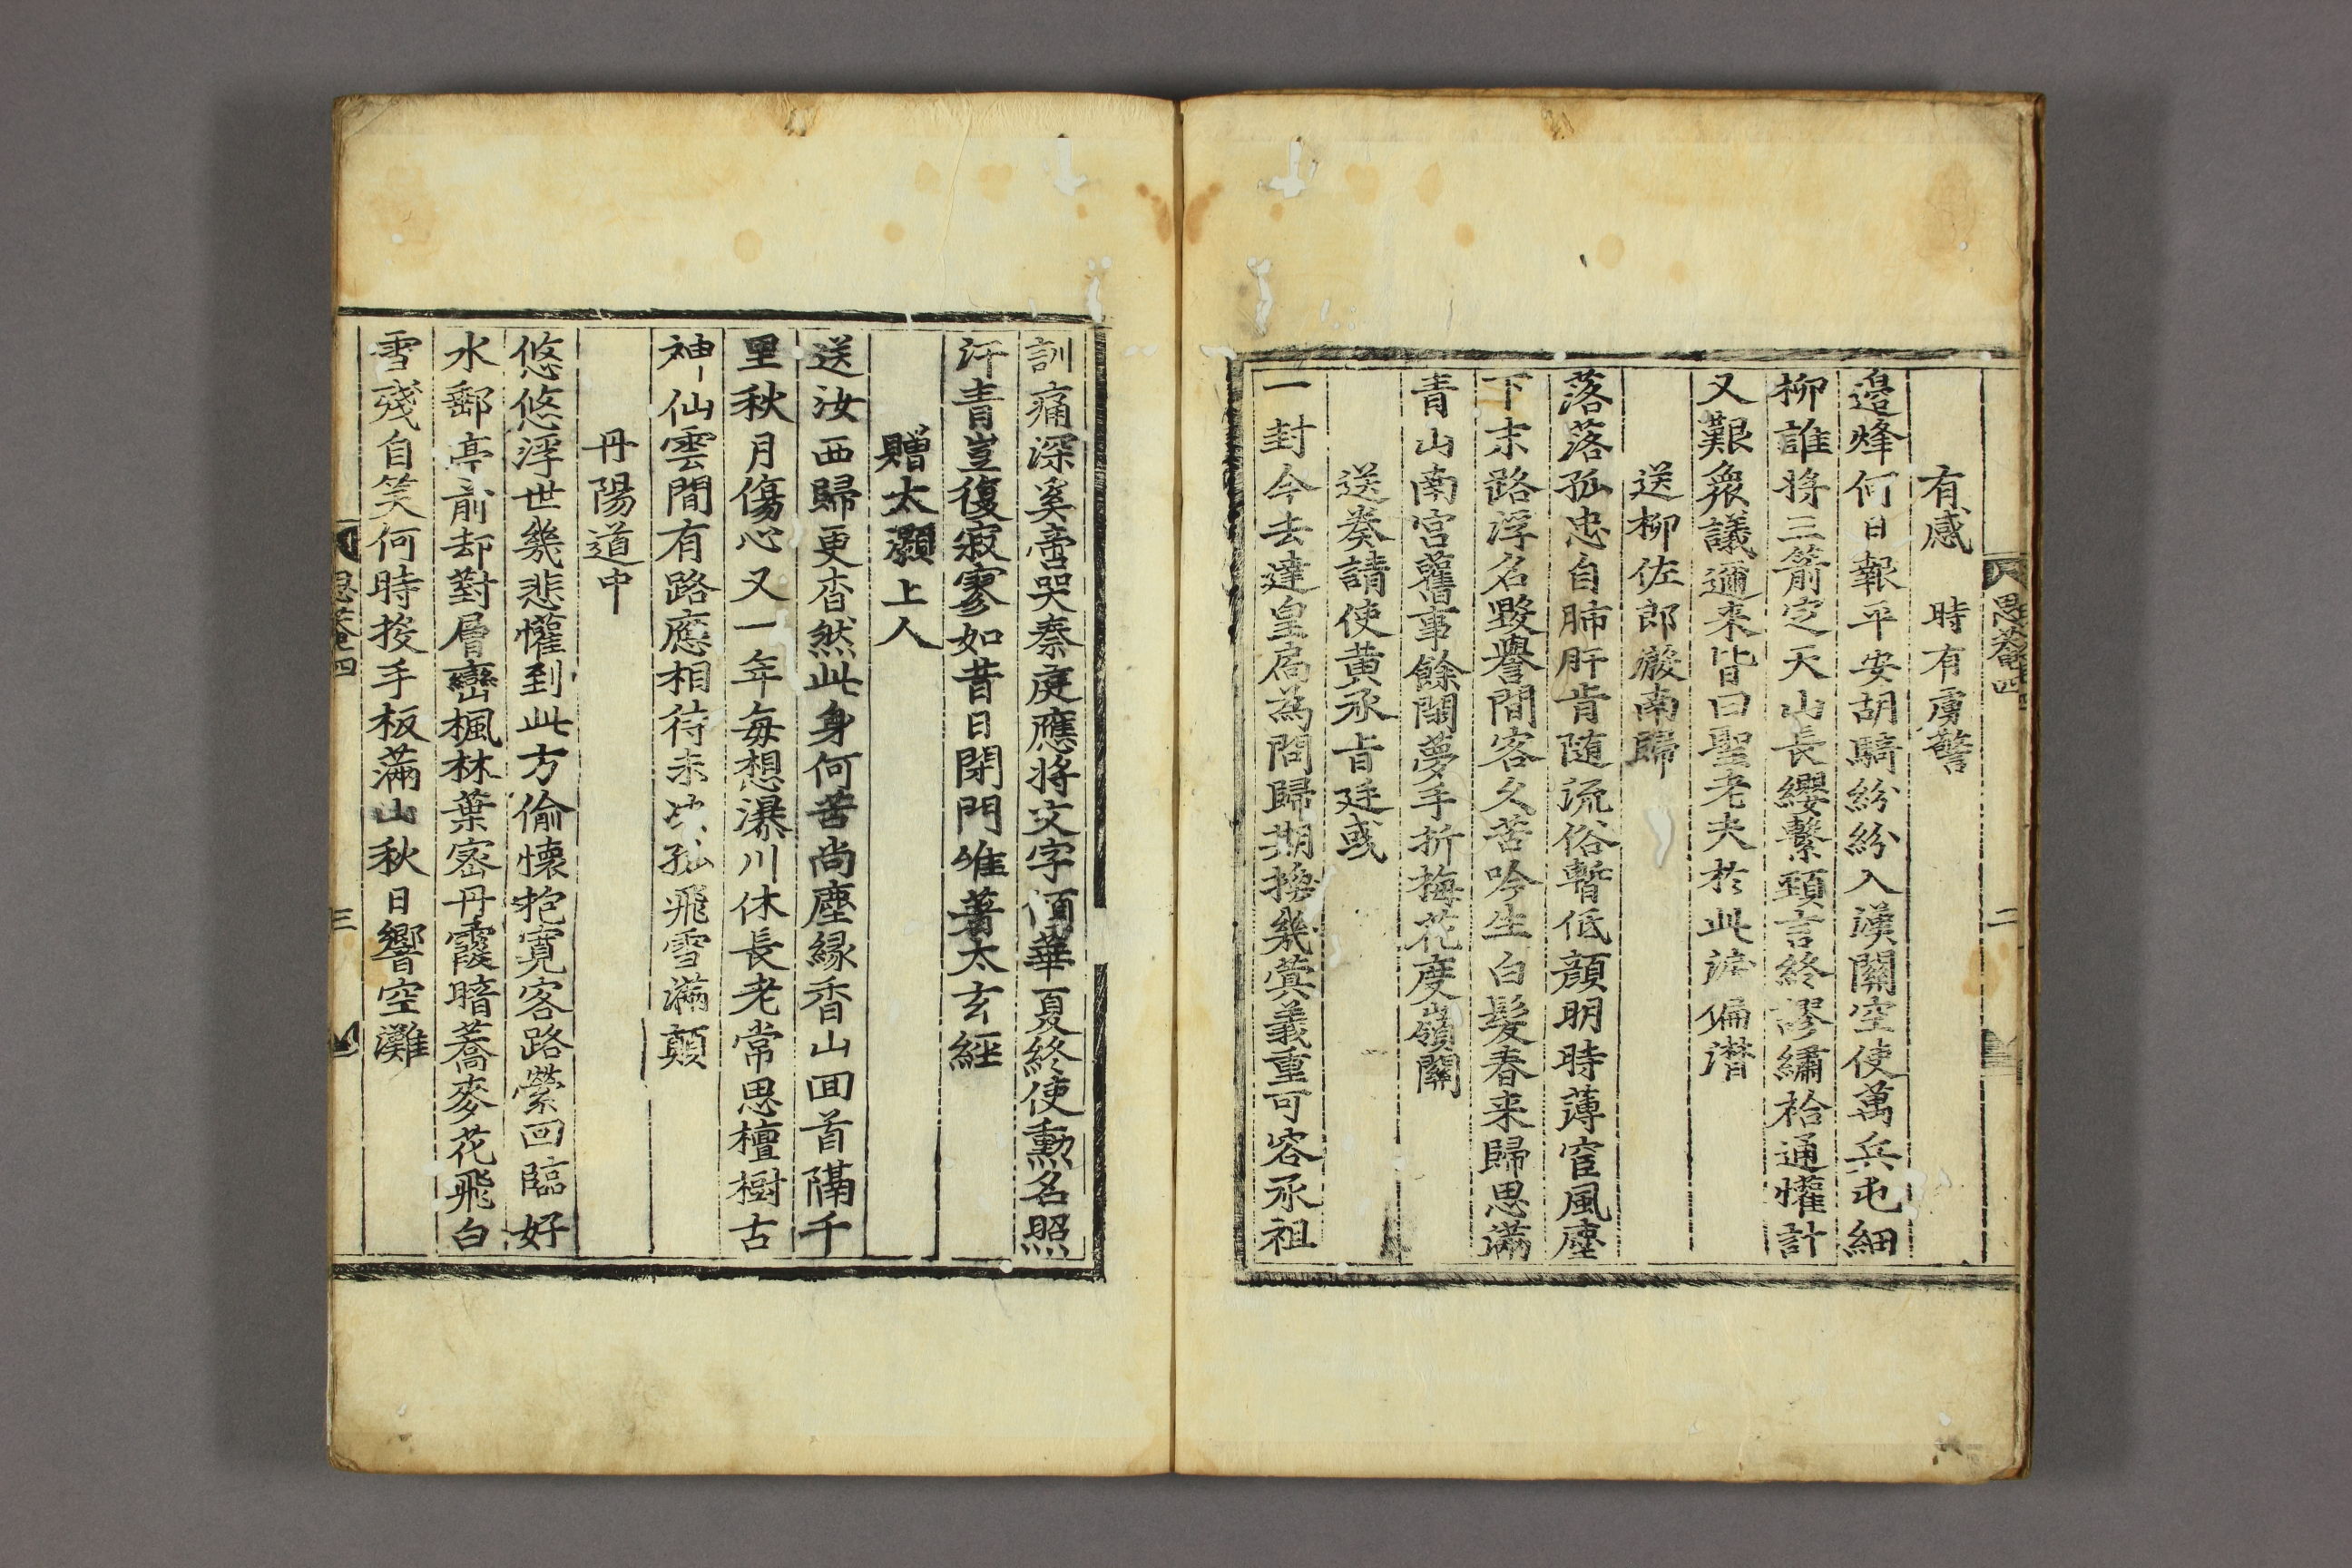 思菴四
二
有感 時有虜警
邉烽何日報平安胡騎紛紛入漢關空使萬兵屯細
柳誰将三箭定天山長纓繫頸言終謬繡袷通懽計
又艱衆議邇来皆曰聖老夫於此淚偏潸
送柳佐郎巖南歸
落落孤忠自肺肝肯随流俗暫低顔明時薄宦風塵
下末路浮名毀譽間客久苦吟生白髮春来歸思滿
青山南宫舊事餘閑夢手折梅花度嶺關
送奏請使黄承旨廷彧
一封今去達皇扃為問歸期換幾蓂義重可容承祖
訓痛深奚啻哭秦庭應将文字傾華夏終使勳名照
汗青豈復寂寥如昔日閉門唯著太玄經
贈太灝上人
送汝西歸更杳然此身何苦尚塵縁香山回首隔千
里秋月傷心又一年每想瀑川休長老常思檀樹古
神仙雲間有路應相待未 孤飛雪滿顛
丹陽道中
悠悠浮世幾悲懽到此方偷懷抱寛客路縈回臨好
水郵亭前却對層巒楓林葉密丹霞暗蕎麥花飛白
雪殘自笑何時投手板滿山秋日響空灘
思菴四
三